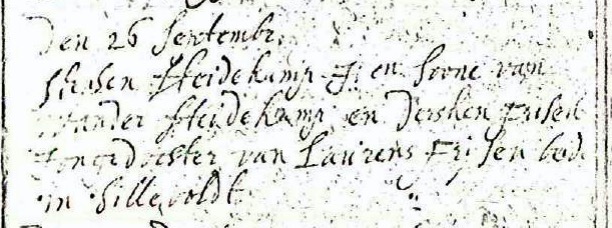 Den 26 septembr.
Heidekamp J: en soone van
wander Heidekamp en Dersken Frisen
Jonge dochter van Laurens Frisen beid
in Sillevoldt